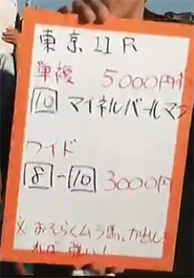 東京11R
単複 5000円
10 マイネルバールマン
ワイド
8-10 3000円
※おそらくムラ馬。力出しき
れば強い!